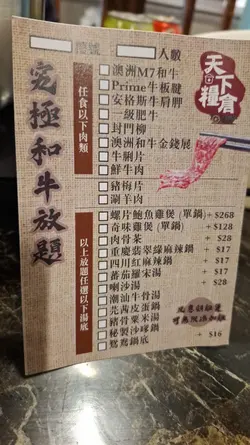 人數
天下糧倉
究極和牛放題
任食以下肉類
澳洲M7和牛
Prime牛板腱
安格斯牛肩胛
一級肥牛
封門柳
澳洲和牛金錢展
牛脷片
鮮牛肉
豬梅片
涮羊肉
以上放題任選以下湯底
螺片鮑魚雞煲(單鍋)+ $268
奇味雞煲(單鍋) + $128
肉骨茶 + $28
重慶翡翠綠麻辣鍋 + $17
四川紅麻辣鍋 + $17
番茄羅宋湯 + $17
喇沙湯 + $28
潮汕牛骨湯
芫茜皮蛋鍋
豬骨粟米湯
秘製沙嗲鍋
鴛鴦鍋底 + $16